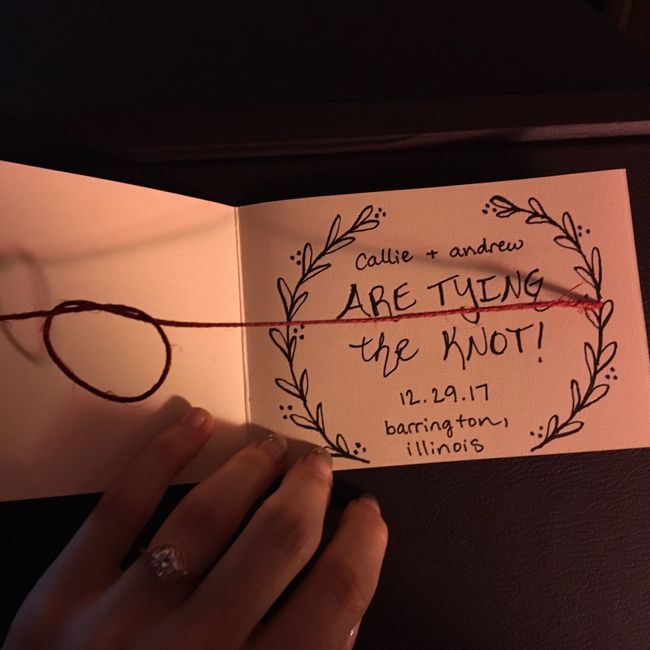 Callie + andrew
ARE TYING
the KNOT!
12.29.17
barrington,
illinois